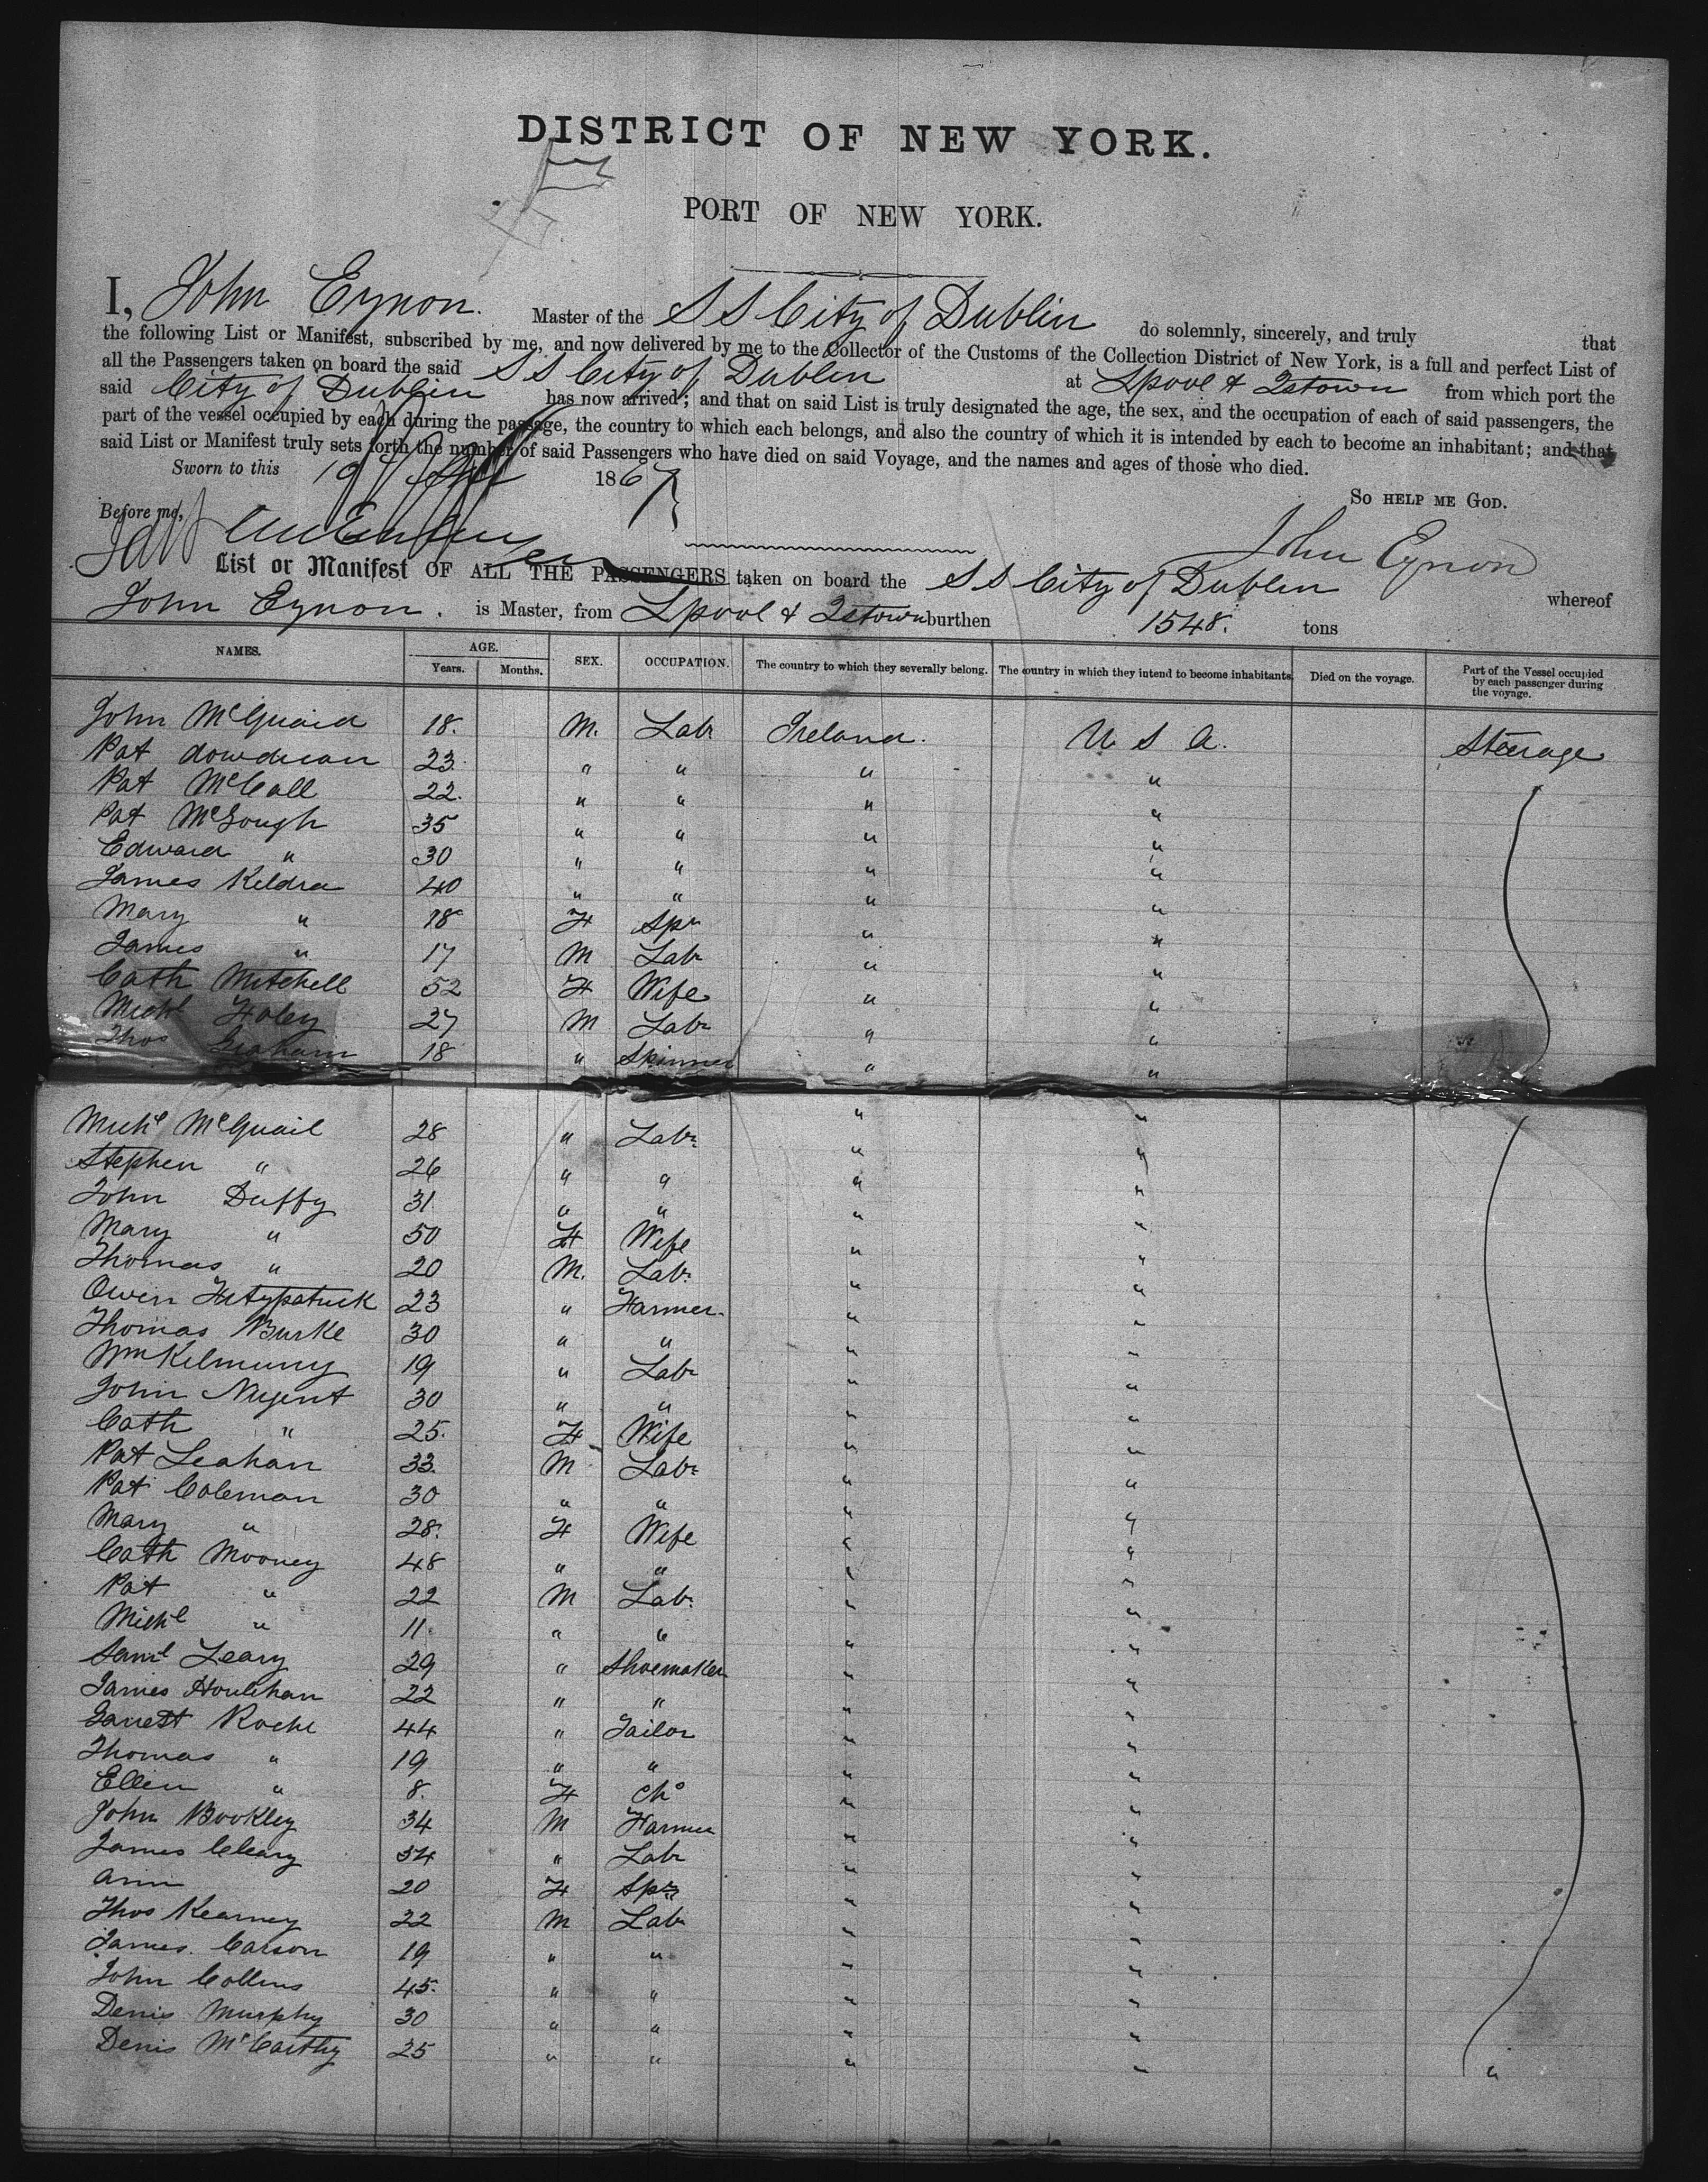 DISTRICT OF NEW YORK.
PORT OF NEW YORK.
I, John Eynon. Master of the S S City of Dublin do solemnly, sincerely, and truly that
the following List or Manifest, subscribed by me, and now delivered by me to the Collector of the Customs of the Collection District of New York, is a full and perfect List of
all the Passengers taken on board the said S S City of Dublin at Lpool & Qstown from which port the
said City of Dublin has now arrived; and that on said List is truly designated the age, the sex, and the occupation of each of said passengers, the
part of the vessel occupied by each during the passage, the country to which each belongs, and also the country of which it is intended by each to become an inhabitant; and that
said List or Manifest truly sets forth the number of said Passengers who have died on said Voyage, and the names and ages of those who died.
Sworn to this 19 1867
So HELP ME GOD.
Before me,
John Eynon
List or Manifest OF ALL THE PASSENGERS taken on board the S S City of Dublin whereof
John Eynon. is Master, from Lpool & Qstown burthen 1548. tons
NAMES. AGE. Years. Months. SEX. OCCUPATION. The country to which they severally belong. The country in which they intend to become inhabitants. Died on the voyage. Part of the Vessel occupied by each passenger during the voyage.
John McQuaid 18. M. Labr Ireland. U S A. Steerage
Pat 23. " " " "
Pat McCall 22. " " " "
Pat McGough 35 " " " "
Edward " 30 " " " "
James Kildra 40 " " " "
Mary " 18 F Spr " "
James " 17 M Labr " "
Cath Mitchell 52 F Wife " "
Michl Foley 27 M Labr " "
Thos Graham 18 " Skinner " "
Michl McQuail 28 " Labr " "
Stephen " 26 " " " "
John Duffy 31 " " " "
Mary " 50 F Wife " "
Thomas " 20 M. Labr " "
Owen Fitzpatrick 23 " Farmer " "
Thomas Burke 30 " " " "
Wm Kilmurry 19 " Labr " "
John Nugent 30 " " " "
Cath " 25. F Wife " "
Pat Leahan 33. M Labr " "
Pat Coleman 30 " " " "
Mary " 28. F Wife " "
Cath Mooney 48 " " " "
Pat " 22 M Labr " "
Michl " 11. " " " "
Saml Leary 29 " Shoemaker " "
James Houlihan 22 " " " "
Garrett Roche 44 " Tailor " "
Thomas " 19 " " " "
Ellen " 8. F Chd " "
John Bookley 34 M Farmer " "
James Cleary 34 " Labr " "
Ann 20 F Spr " "
Thos Kearney 22 M Labr " "
James. Carson 19 " " " "
John Collins 45. " " " "
Denis Murphy 30 " " " "
Denis McCarthy 25 " " " " "